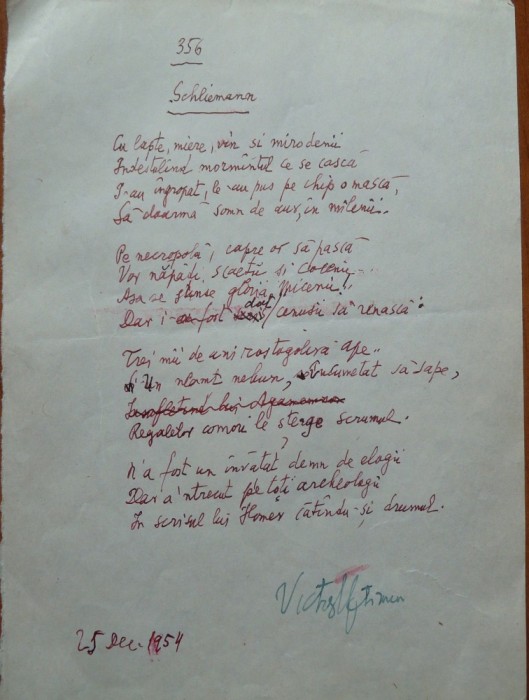 356
Schliemann
Cu lapte, miere, vin si mirodenii
Indestulînd mormîntul ce se cască
I-au îngropat, le-au pus pe chip o mască,
Să doarmă somn de aur, în milenii.
Pe necropolă, capre or să pască
Vor năpădi, scaeții si
Asa se stinse gloria Micenii!
Dar i-a fost dat cenusii să renască:
Trei mii de ani rostogoliră ape..
Un neamt nebun, încumetat să sape,
Insufletind lui Agamemnon
Regalelor comori le sterge scrumul.
N'a fost un învătat demn de elogii
Dar a'ntrecut pe toți archeologii
In scrisul lui Homer cătîndu-și drumul.
Victor Eftimiu
25 Dec. 1954